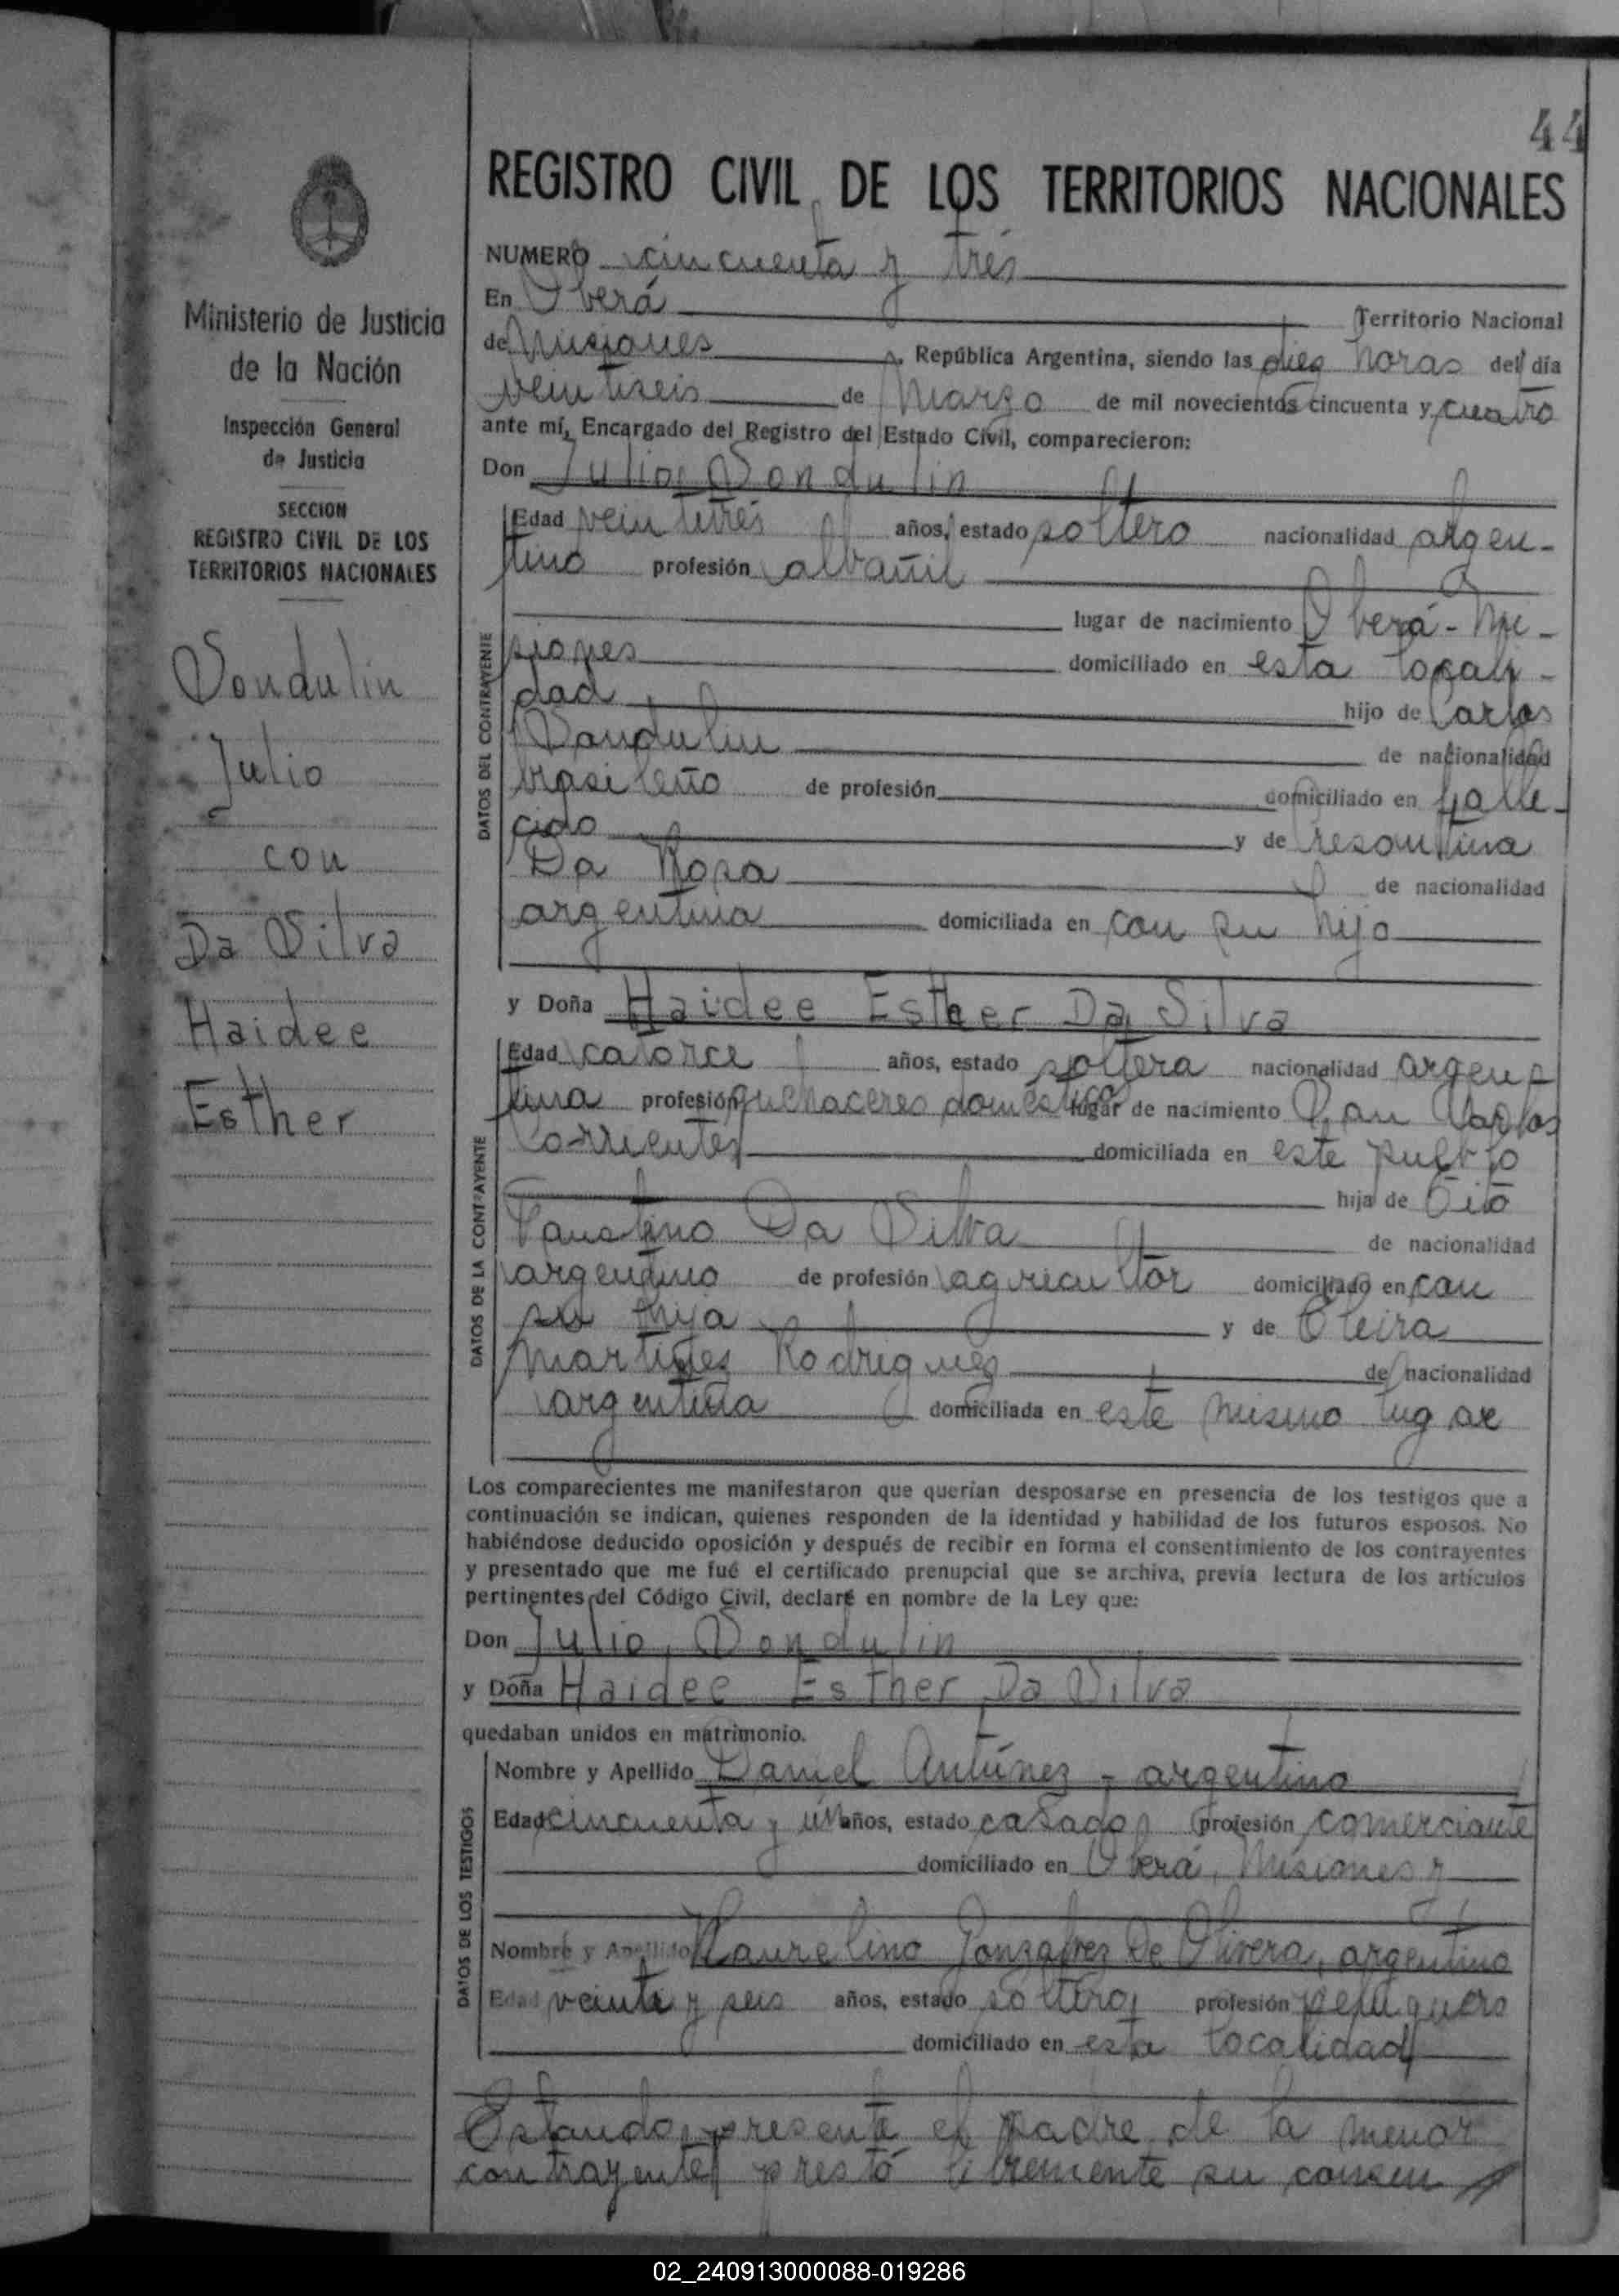 44
REGISTRO CIVIL DE LOS TERRITORIOS NACIONALES
Ministerio de Justicia
de la Nación
Inspección General
de Justicia
SECCION
REGISTRO CIVIL DE LOS
TERRITORIOS NACIONALES
Sondulin
Julio
con
Da Silva
Haidee
Esther
NUMERO cincuenta y tres
En Oberá Territorio Nacional
de Misiones República Argentina, siendo las diez horas del día
veintiseis de Marzo de mil novecientos cincuenta y cuatro
ante mí, Encargado del Registro del Estado Civil, comparecieron:
Don Julio Sondulin
DATOS DEL CONTRAYENTE
Edad veintitrés años, estado soltero nacionalidad argen-
tino profesión albañil
lugar de nacimiento Oberá - Mi-
siones domiciliado en esta locali-
dad hijo de Carlos
Sondulin de nacionalidad
brasileño de profesión domiciliado en falle-
cido y de
Da Rosa de nacionalidad
argentina domiciliada en con su hijo
y Doña Haidee Esther Da Silva
DATOS DE LA CONTRAYENTE
Edad catorce años, estado soltera nacionalidad argen-
tina profesión quehaceres domésticos lugar de nacimiento San Carlos
Corrientes domiciliada en este pueblo
hija de
Faustino Da Silva de nacionalidad
argentino de profesión agricultor domiciliado en con
su hija y de
Martinez Rodriguez de nacionalidad
argentina domiciliada en este mismo lugar
Los comparecientes me manifestaron que querían desposarse en presencia de los testigos que a
continuación se indican, quienes responden de la identidad y habilidad de los futuros esposos. No
habiéndose deducido oposición y después de recibir en forma el consentimiento de los contrayentes
y presentado que me fué el certificado prenupcial que se archiva, previa lectura de los artículos
pertinentes del Código Civil, declaré en nombre de la Ley que:
Don Julio Sondulin
y Doña Haidee Esther Da Silva
quedaban unidos en matrimonio.
DATOS DE LOS TESTIGOS
Nombre y Apellido Daniel Antúnez - argentino
Edad cincuenta y un años, estado casado profesión comerciante
domiciliado en Oberá, Misiones y
Nombre y Apellido Laurelino Gonzalvez De Olivera, argentino
Edad veinte y seis años, estado soltero, profesión peluquero
domiciliado en esta localidad
Estando presente el padre de la menor
contrayente prestó libremente su consen
02_240913000088-019286